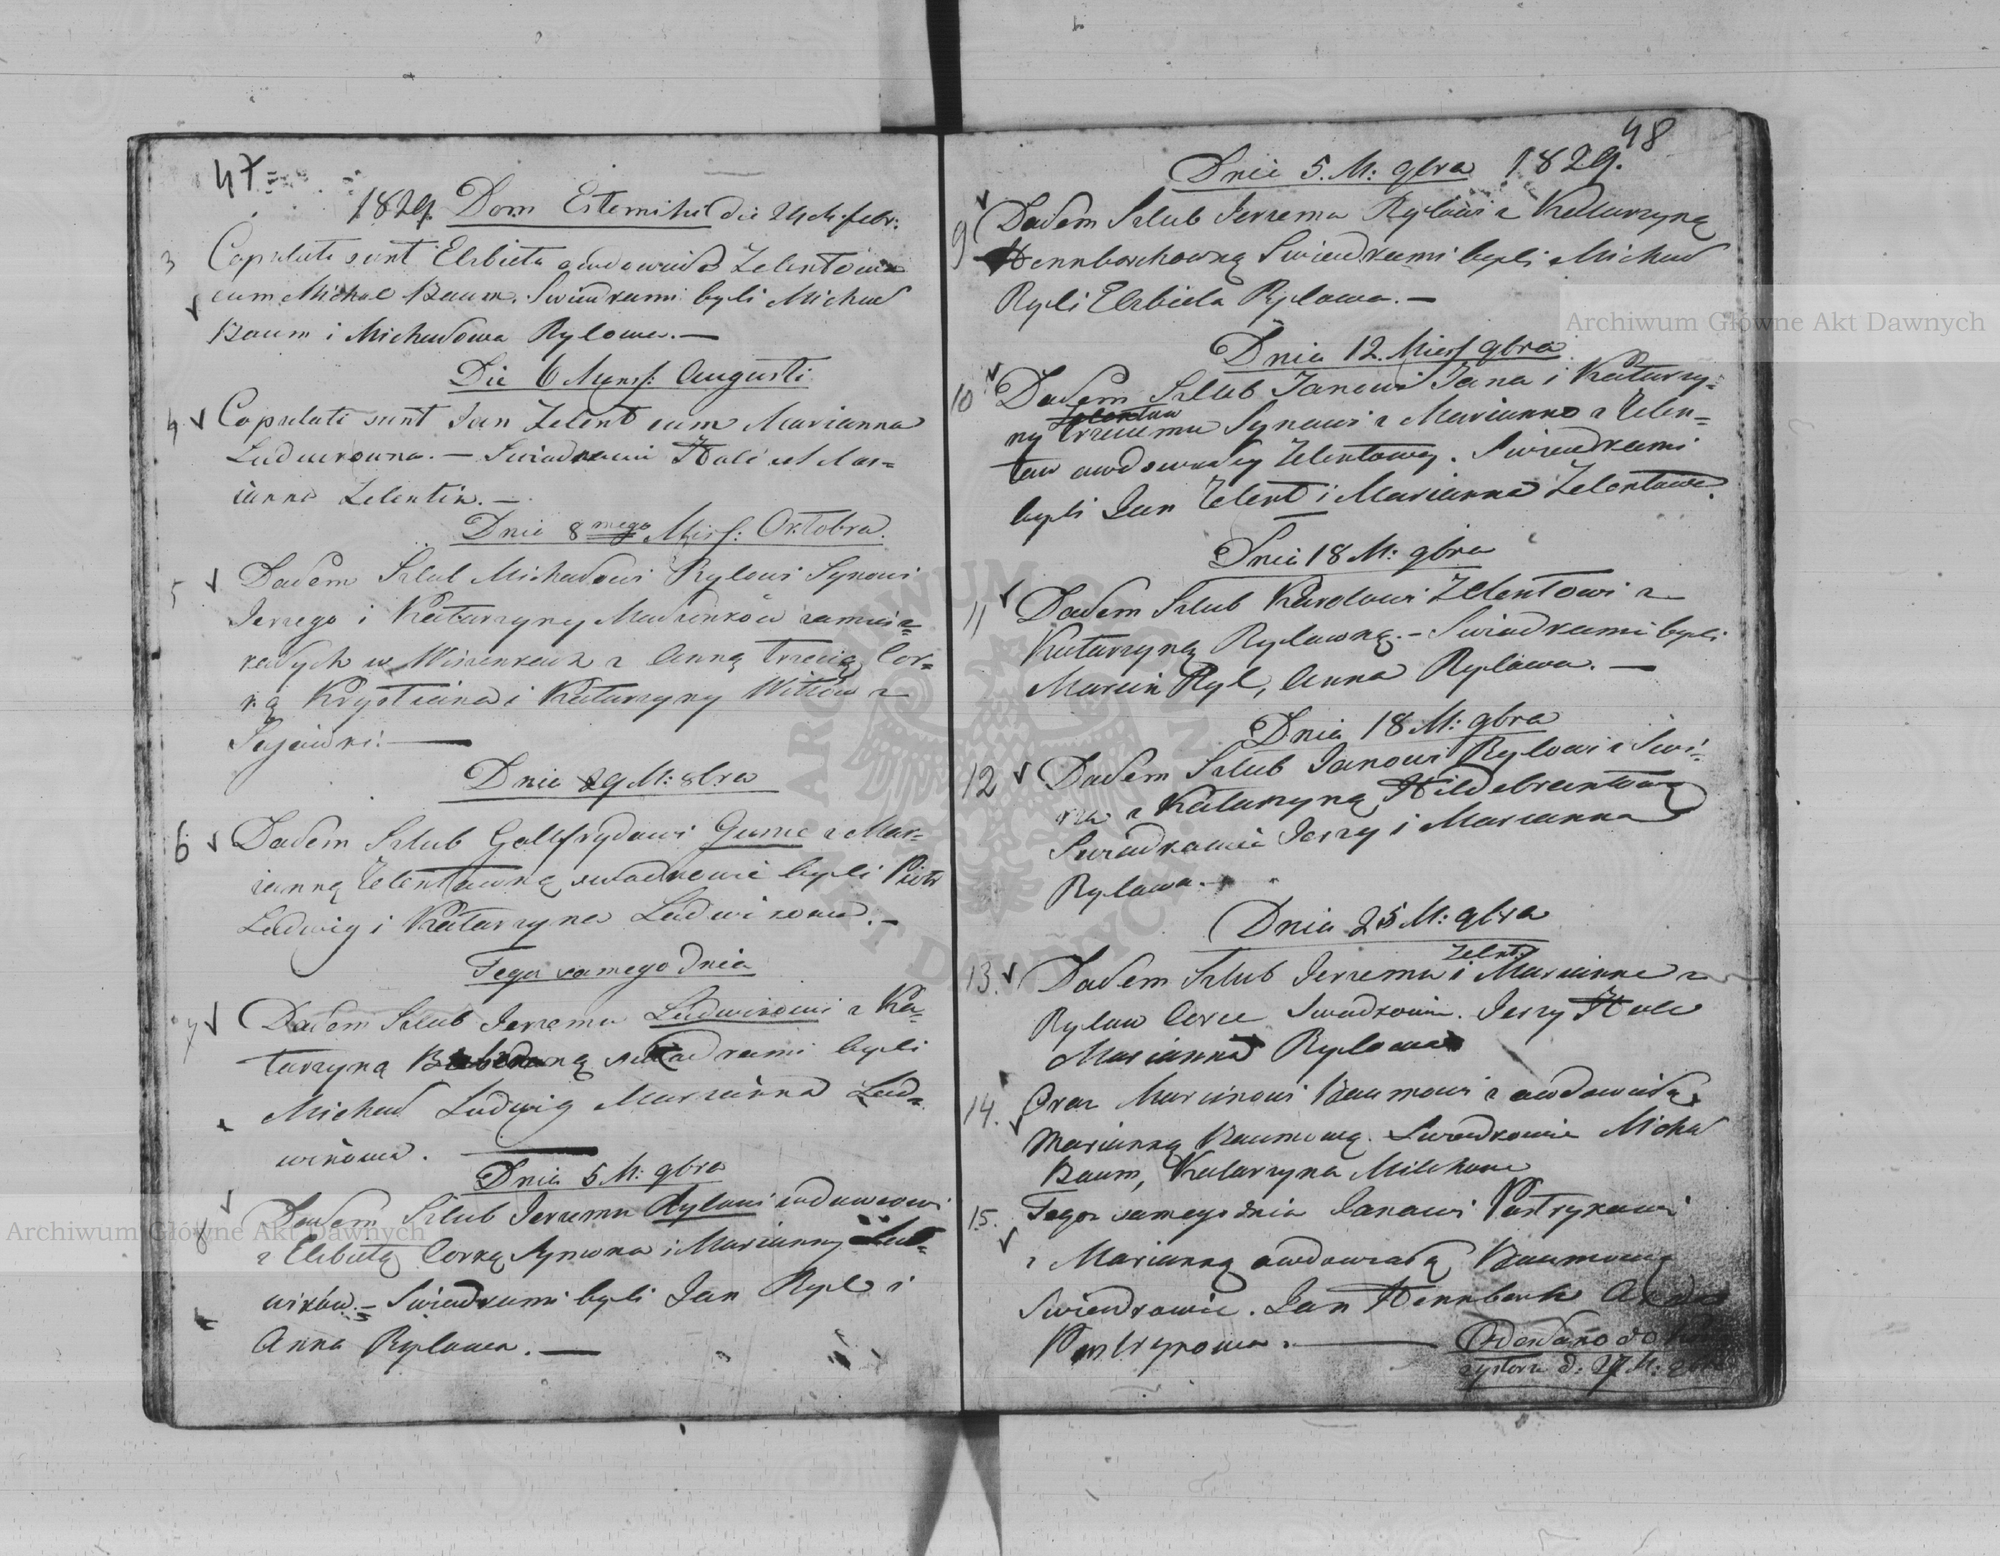 47
1829. Dom Estomihi die 24 M. febr:
3 Copulati sunt Elzbieta owdowiała Zelentowa
cum Michał Baum. Swiadkami byli Michał
Baum i Michałowa Rylowa. —
Die 6 Mens: Augusti
4 Copulati sunt Jan Zelent cum Marianna
Ludwikowna. — Swiadkowie Hale et Mar=
ianna Zelentin. —
Dnia 8 mego Mies: Oktobra.
5 Dałem Szlub Michałowi Rylowi Synowi
Jerzego i Katarzyny Małżonków zamiesz=
kałych w z Anną trzecią Cor=
ką Krystiana i Katarzyny Wittów z
Dnia 29 M: 8bra
6 Dałem Szlub Gottfrydowi Gume z Mar=
ianną Zelentawną swiadkowie byli Piotr
Ludwig i Katarzyna Ludwikowa. —
Tego samego Dnia
7 Dałem Szlub Jerzemu Ludwikowi z Ka=
tarzyną swiadkami byli
Michał Ludwig Marianna Lud=
wikowa. —
Dnia 5 M: 9bra
8 Dałem Szlub Jerzemu Rylowi owdowcowi
z Elzbietą Corką Szymona i Marianny Lud=
wików. — Swiadkami byli Jan Ryl i
Anna Rylowa. —
48
Dnia 5. M: 9bra 1829.
9 Dałem Szlub Jerzemu Rylowi z Katarzyną
Hennborchowną Swiadkami byli Michał
Ryl i Elzbieta Rylowa. —
Dnia 12. Mies 9bra
10 Dałem Szlub Janowi Jana i Katarzy=
Zelentow
ny trzeciemu Synowi z Marianno z Zelen=
tow owdowiałey Zelentowey. Swiadkami
byli Jan Zelent i Marianna Zelentowa.
Dnia 18 M: 9bra
11 Dałem Szlub Karolowi Zelentowi z
Katarzyną Rylawną. — Swiadkami byli
Marcin Ryl, Anna Rylowa. —
Dnia 18 M: 9bra
12 Dałem Szlub Janowi Rylowi z
z Katarzyną Hildebrantową
Swiadkowie Jerzy i Marianna
Rylowa. —
Dnia 25 M: 9bra
Zelent
13. Dałem Szlub Jerzemu i Marianne z
Rylow Corce Swiadkowie. Jerzy Hale
Marianna Rylowa
14. Oraz Marcinowi Baumowi z owdowiałą
Marianną Baumową. Swiadkowie Michał
Baum, Katarzyna
15. Tegoz samego dnia Janowi Pastrykowi
z Marianną owdowiałą Baumową
Swiadkowie. Jan Hennbork
Pastrykowa. — Odesłano do
d. 27 M:
Archiwum Główne Akt Dawnych
Archiwum Główne Akt Dawnych
ARCHIWUM GŁÓWNE AKT DAWNYCH